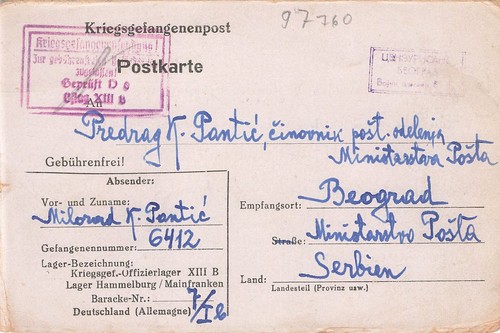 Kriegsgefangenenpost
97760
Kriegsgefangenensendung!
Geprüft D 9
Oflag XIII B
Postkarte
An
Predrag K. Pantić, činovnik pošt. odelenja
Ministarstva Pošta
Gebührenfrei!
Absender:
Vor- und Zuname:
Milorad K. Pantić
Gefangenennummer:
6412
Lager-Bezeichnung:
Kriegsgef.-Offizierlager XIII B
Lager Hammelburg / Mainfranken
Baracke-Nr.: 7/I b
Deutschland (Allemagne)
Empfangsort: Beograd
Straße: Ministarstvo Pošta
Land: Serbien
Landesteil (Provinz usw.)